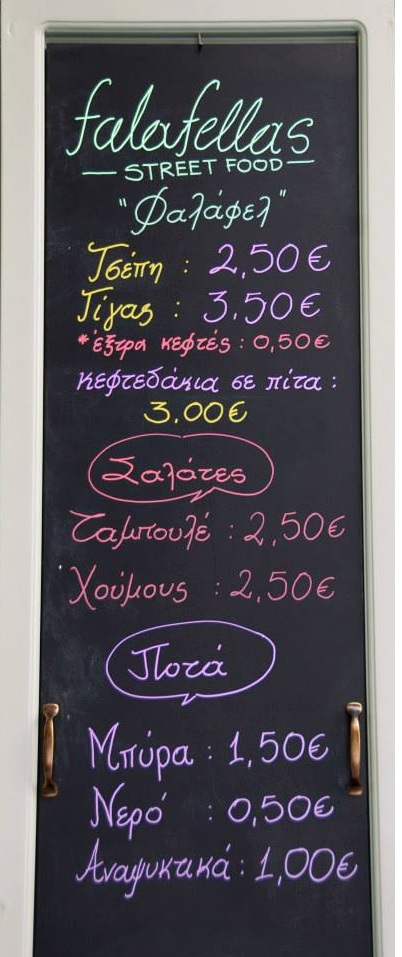 falafellas
STREET FOOD
"Φαλάφελ"
Τσέπη : 2,50€
Γίγας : 3.50€
*έξτρα κεφτές : 0,50€
κεφτεδάκια σε πίτα :
3.00€
Σαλάτες
Ταμπουλέ : 2,50€
Χούμους : 2,50€
Ποτά
Μπύρα : 1,50€
Νερό : 0,50€
Αναψυκτικά : 1,00€